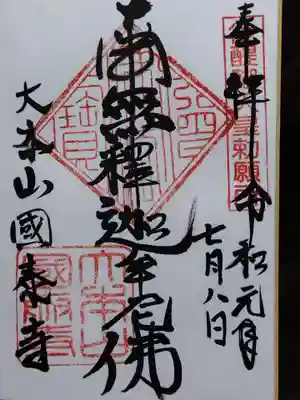 奉拝 令和元年
七月八日
南無釋迦牟尼佛
大本山國泰寺